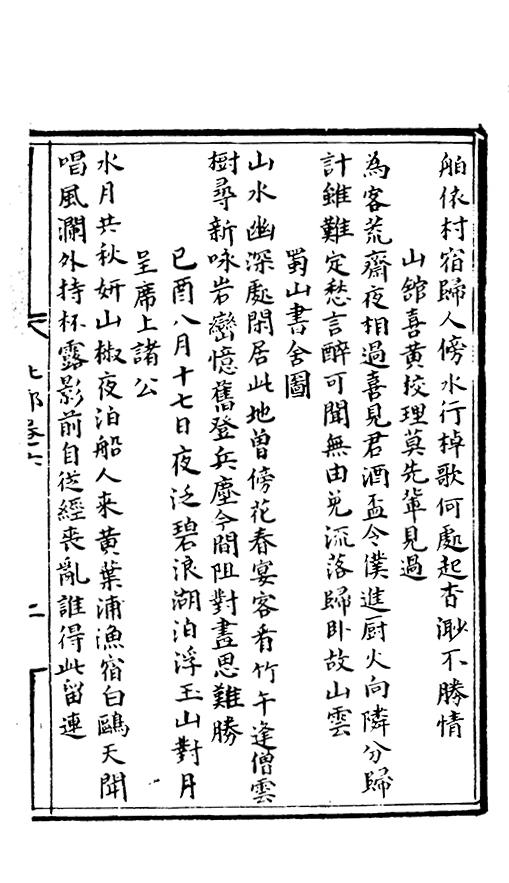 舶依村宿歸人傍水行棹歌何處起杳渺不勝情
山舘喜黃挍理莫先軰見過
為客荒齋夜相過喜見君酒盃令僕進厨火向隣分歸
計雖難定愁言醉可聞無由免流落歸卧故山雲
蜀山書舍圖
山水幽深處閑居此地曾傍花春宴客看竹午逢僧雲
樹尋新咏岩巒憶舊登兵塵今間阻對畫思難勝
已酉八月十七日夜泛碧浪湖泊浮玉山對月
呈席上諸公
水月共秋妍山椒夜泊船人來黃葉浦漁宿白鷗天聞
唱風瀾外持杯露影前自從經喪亂誰得此留連
卷六
二